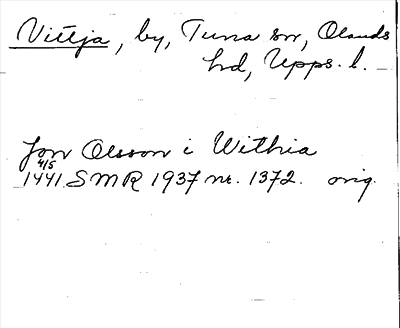 Vittja, by, Tuna sn, Olands
hd, Upps. l.
Jon Olsson i Withia
4/5
1441 SMR 1937 nr. 1372. orig.